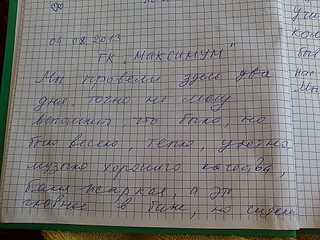 04.08.2013
ГК "Максимум"
Мы провели здесь два
дня. точно не могу
вспомнить что было, но
было весело, тепло, уютно
музыка хорошего качества,
баня жаркая, а это
главное в бане, но сидели
учи
кол
был
нас
Мы